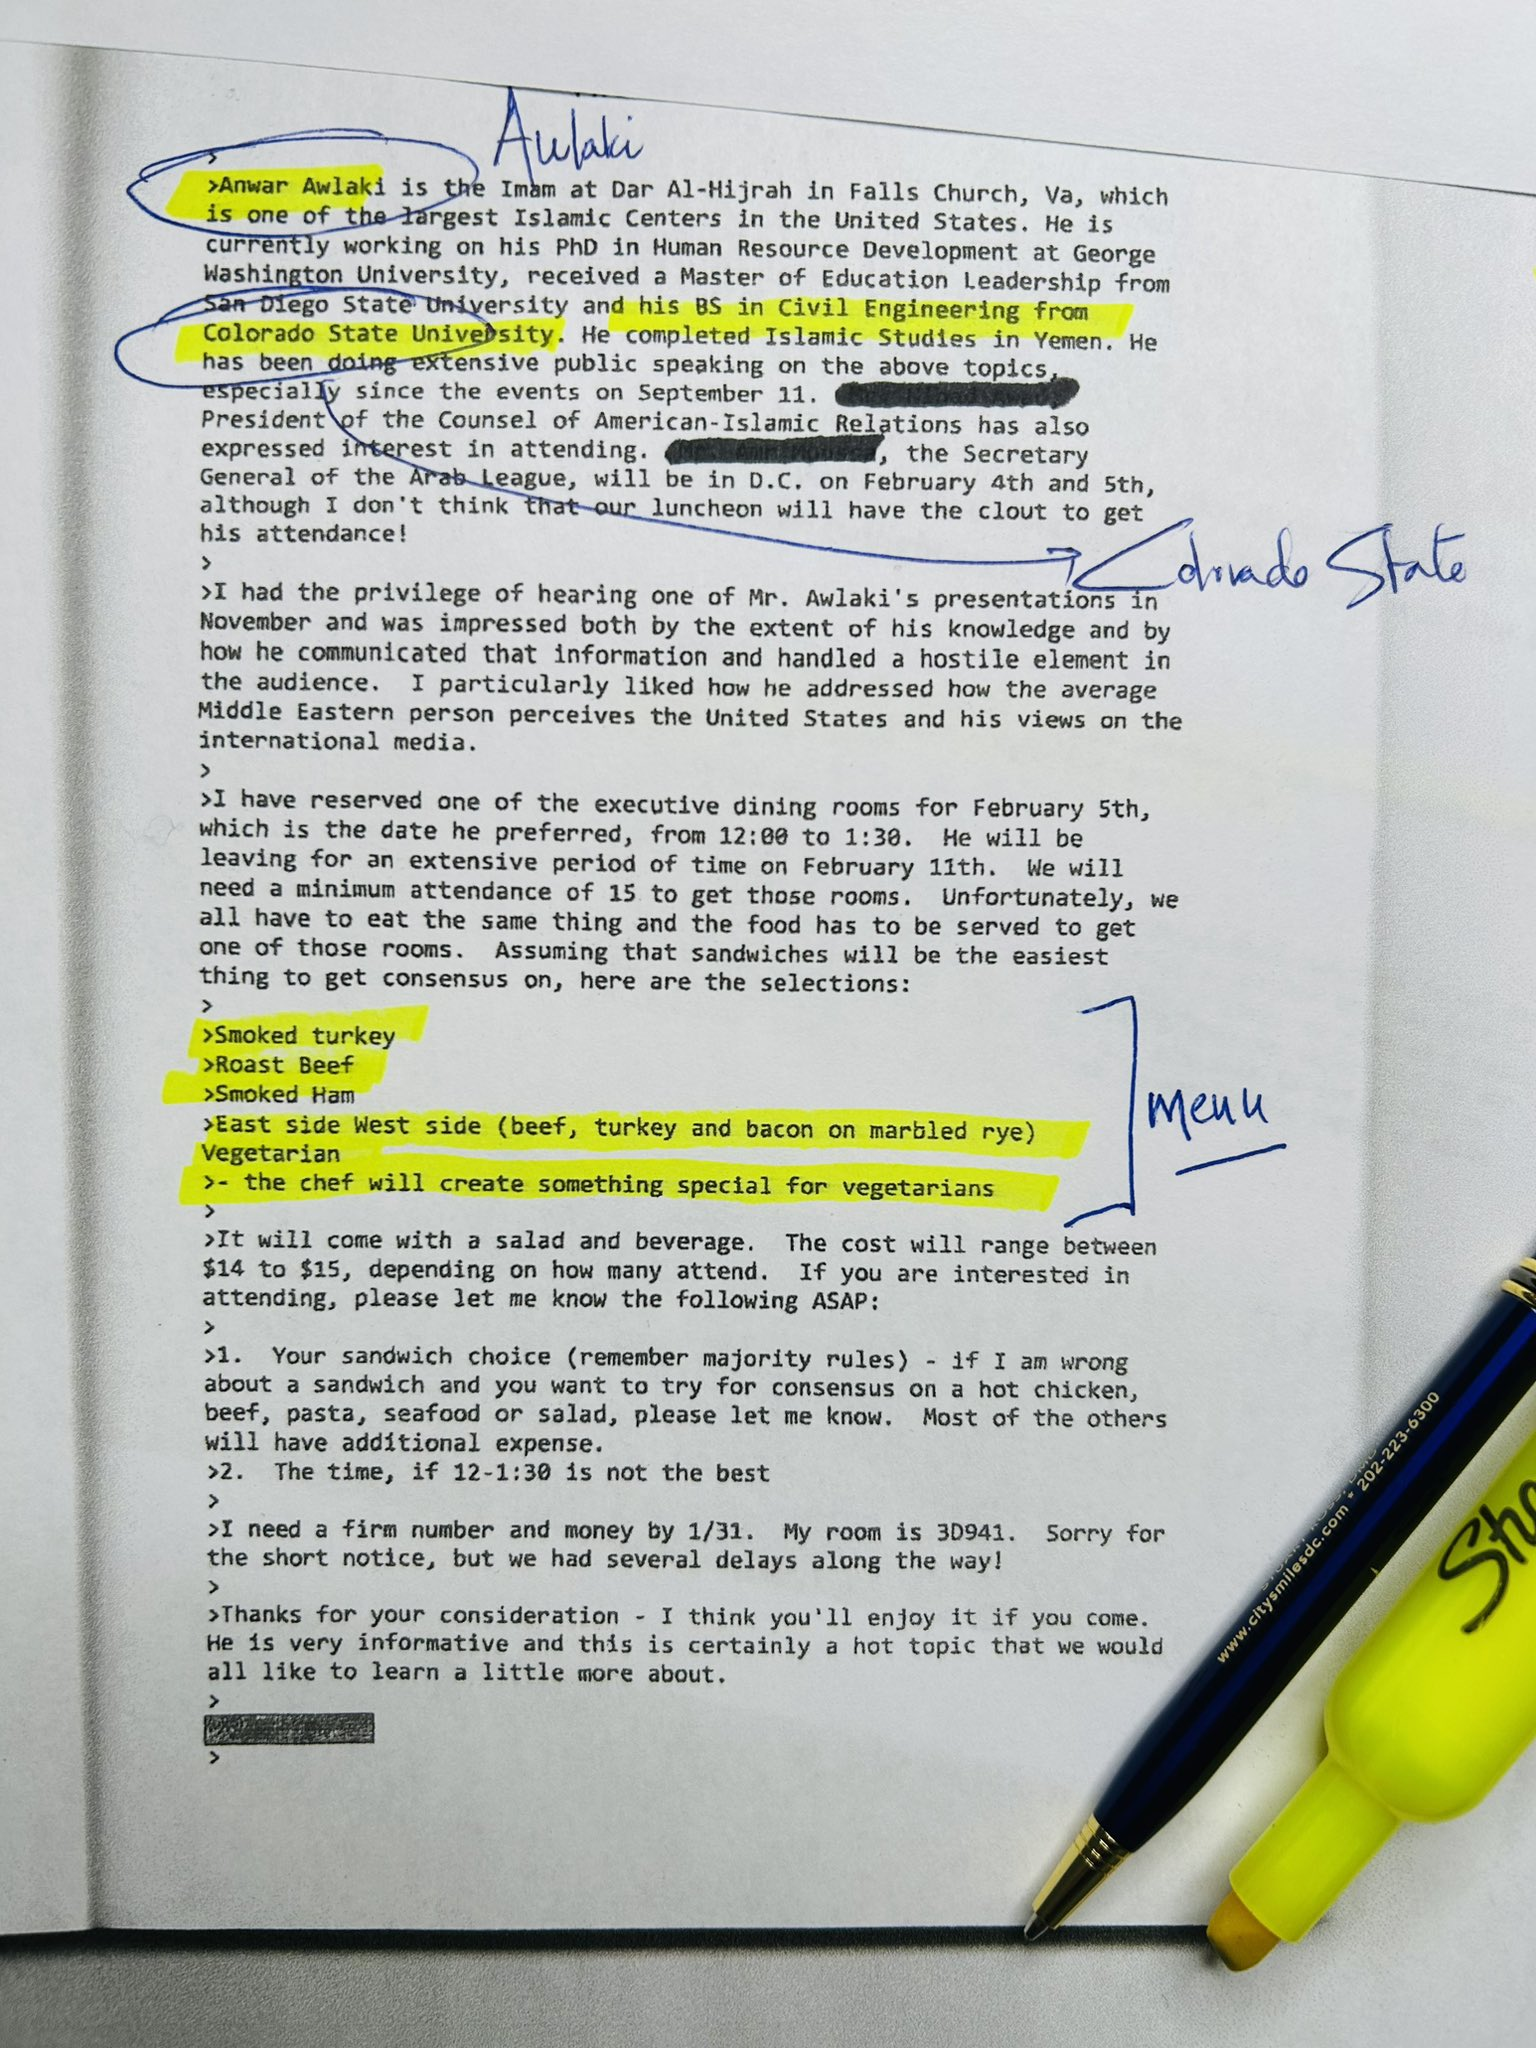 Awlaki
>
>Anwar Awlaki is the Imam at Dar Al-Hijrah in Falls Church, Va, which
is one of the largest Islamic Centers in the United States. He is
currently working on his PhD in Human Resource Development at George
Washington University, received a Master of Education Leadership from
San Diego State University and his BS in Civil Engineering from
Colorado State University. He completed Islamic Studies in Yemen. He
has been doing extensive public speaking on the above topics,
especially since the events on September 11.
President of the Counsel of American-Islamic Relations has also
expressed interest in attending. , the Secretary
General of the Arab League, will be in D.C. on February 4th and 5th,
although I don't think that our luncheon will have the clout to get
his attendance!
>
Colorado State
>I had the privilege of hearing one of Mr. Awlaki's presentations in
November and was impressed both by the extent of his knowledge and by
how he communicated that information and handled a hostile element in
the audience.  I particularly liked how he addressed how the average
Middle Eastern person perceives the United States and his views on the
international media.
>
>I have reserved one of the executive dining rooms for February 5th,
which is the date he preferred, from 12:00 to 1:30.  He will be
leaving for an extensive period of time on February 11th.  We will
need a minimum attendance of 15 to get those rooms.  Unfortunately, we
all have to eat the same thing and the food has to be served to get
one of those rooms.  Assuming that sandwiches will be the easiest
thing to get consensus on, here are the selections:
>
>Smoked turkey
>Roast Beef
>Smoked Ham
>East side West side (beef, turkey and bacon on marbled rye)
Vegetarian
>- the chef will create something special for vegetarians
menu
>
>It will come with a salad and beverage.  The cost will range between
$14 to $15, depending on how many attend.  If you are interested in
attending, please let me know the following ASAP:
>
>1.  Your sandwich choice (remember majority rules) - if I am wrong
about a sandwich and you want to try for consensus on a hot chicken,
beef, pasta, seafood or salad, please let me know.  Most of the others
will have additional expense.
>2.  The time, if 12-1:30 is not the best
>
>I need a firm number and money by 1/31.  My room is 3D941.  Sorry for
the short notice, but we had several delays along the way!
>
>Thanks for your consideration - I think you'll enjoy it if you come.
He is very informative and this is certainly a hot topic that we would
all like to learn a little more about.
>
>
www.citysmilesdc.com * 202-223-6300